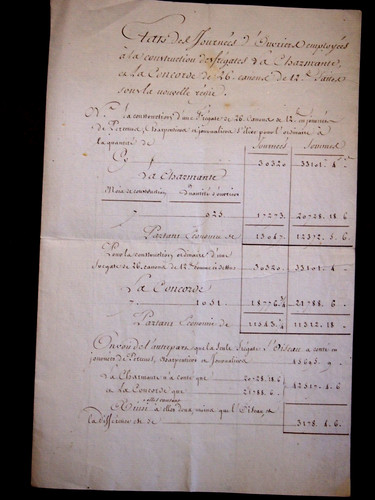 Etats des Journées d'Ouvriers employées
à la construction des frégates La Charmante
et La Concorde de 26 canons de 12
sous la nouvelle régie.
La construction d'une frégate de 26 canons de 12 en journées
de Perceurs, Charpentiers et journaliers s'élève pour l'ordinaire à
la quantité de
Journées Sommes
Cy 30320 33101 4
La Charmante
Mois de construction Quantité d'ouvriers
7 1023 17273 20728 18 6
Partant Économie de 13047 12372 5 6
Pour la construction ordinaire d'une
frégate de 26 canons de 12 comme ci dessus 30320 33101 4
La Concorde
7 1031 18776 ¾ 21788 6
Partant Économie de 11543 ¼ 11312 18
On voit d'autre part que la seule frégate L'Oiseau a couté en
journées de Perceurs, Charpentiers et Journaliers 45695
La Charmante n'a couté que 20728 18 6
et La Concorde que 21788 6 42517 4 6
elles content
à elles deux, moins que L'Oiseau, et
la différence est de 3178 4 6